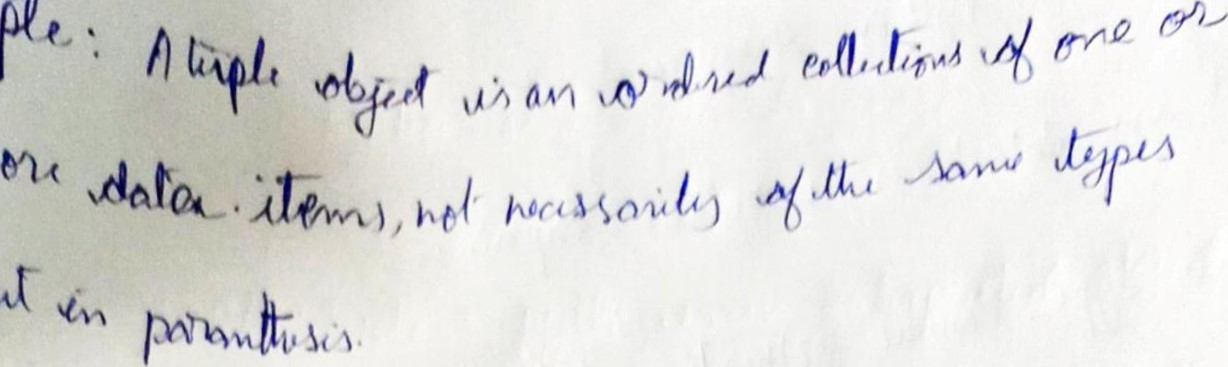 ple: A tuple object is an ordered collections of one or
ore data items, not necessarily of the same types
ut in paranthesis.